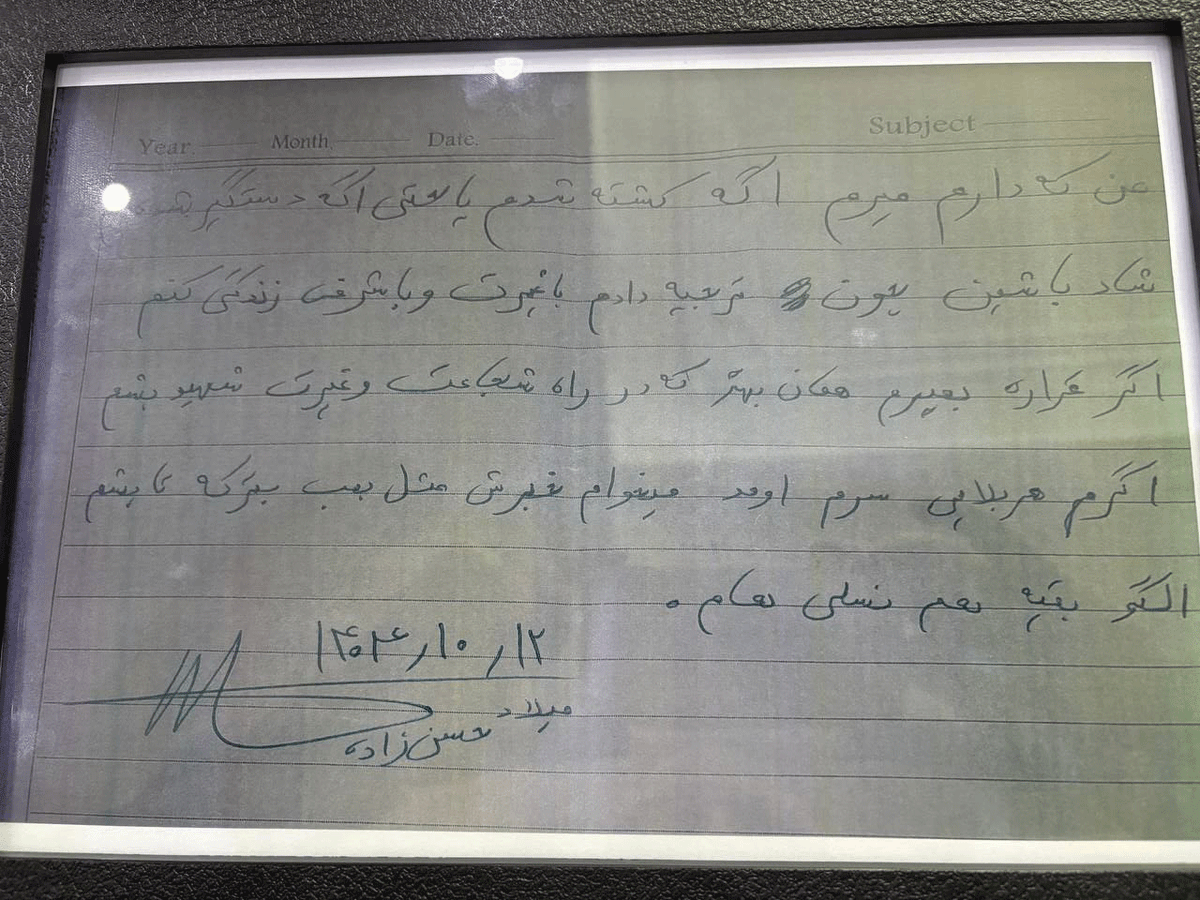 Year Month Date. Subject
من که دارم میرم اگه کشته شدم یا حتی اگه دستگیر شدم
شاد باشین چون ترجیه دادم باغیرت و باشرف زندگی کنم
اگر قراره بمیرم همان بهتر که در راه شجاعت و غیرت شهید بشم
اگرم هربلایی سرم اومد میخوام خبرش مثل بمب بترکه تا بشم
الگو بقیه هم نسلی هام.
۱۴۰۴/۱۰/۱۲
میلاد
حسن زاده